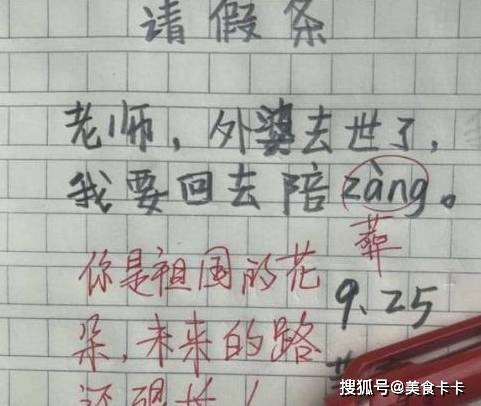 请假条
老师，外婆去世了，
我要回去陪zàng。
葬
你是祖国的花
9.25
朵，未来的路
还很长！
搜狐号@美食卡卡